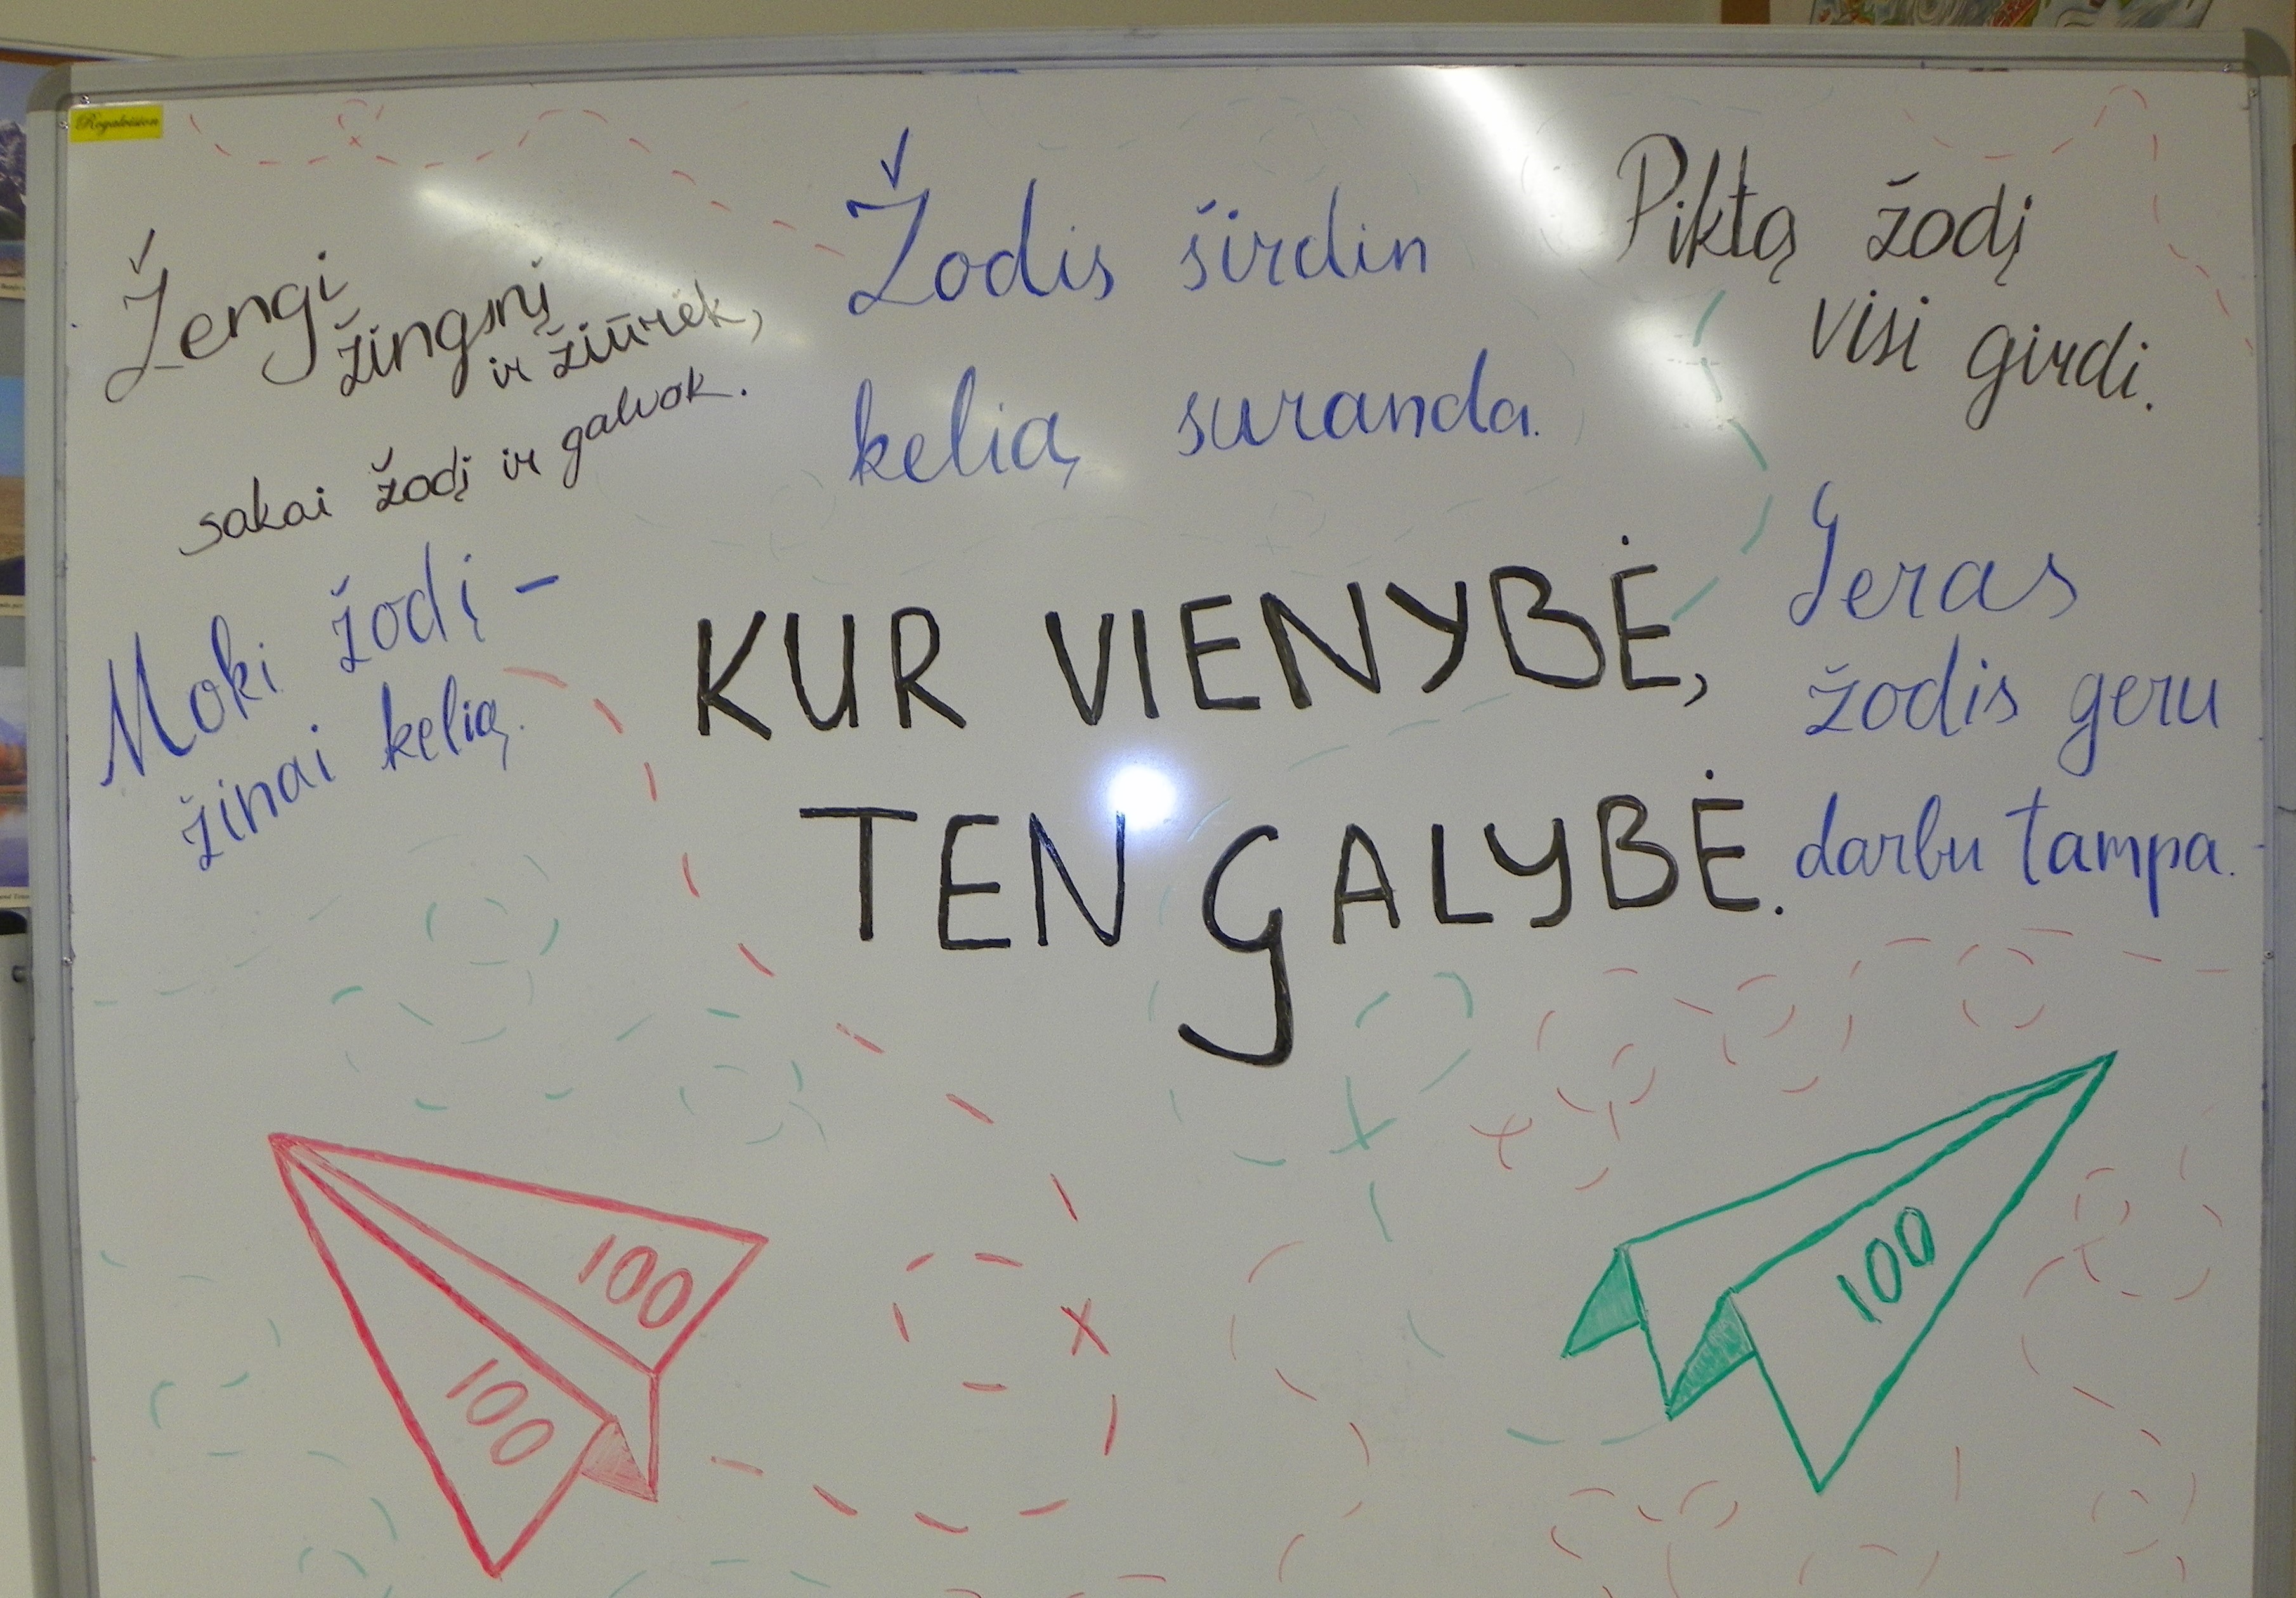 Royalvision
Žengi
žingsnį
ir žiūrėk,
sakai žodį ir galvok.
Žodis širdin
kelią suranda.
Piktą žodį
visi girdi.
Moki žodį –
žinai kelią.
KUR VIENYBĖ,
TEN GALYBĖ.
Geras
žodis geru
darbu tampa.
100
100
100